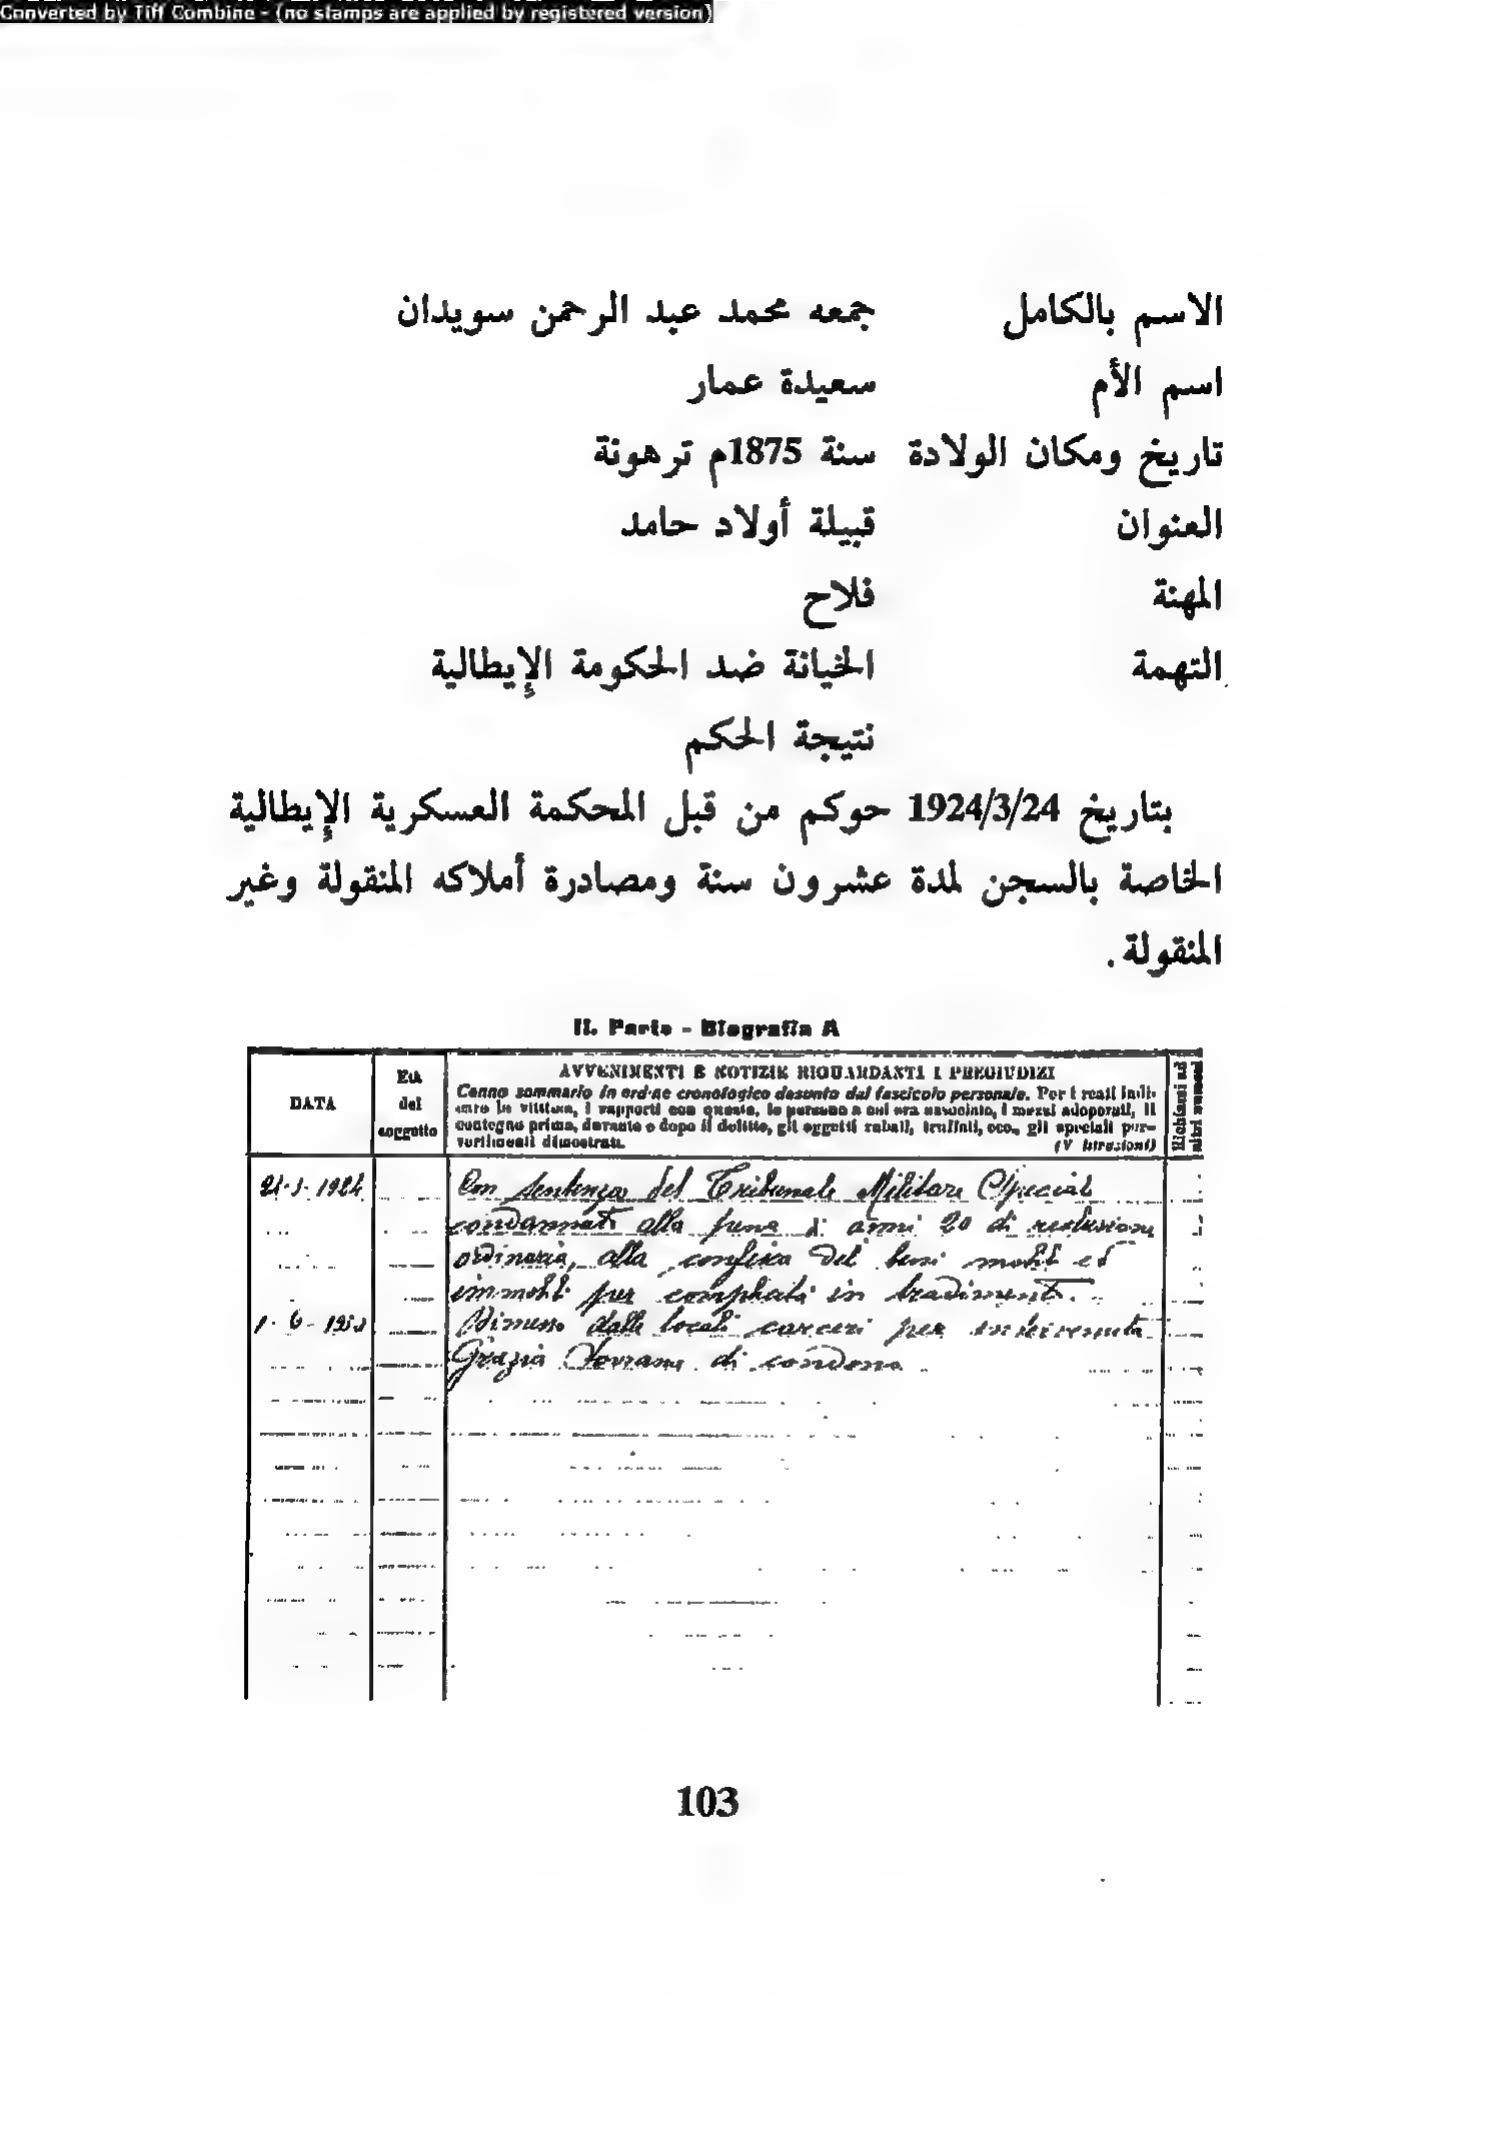 Converted by Tiff Combine - (no stamps are applied by registered version)
الاسم بالكامل جمعه محمد عبد الرحمن سويدان
اسم الأم سعيدة عمار
تاريخ ومكان الولادة سنة 1875م ترهونة
العنوان قبيلة أولاد حامد
المهنة فلاح
التهمة الخيانة ضد الحكومة الإيطالية
نتيجة الحكم
بتاريخ 1924/3/24 حوكم من قبل المحكمة العسكرية الإيطالية
الخاصة بالسجن لمدة عشرون سنة ومصادرة أملاكه المنقولة وغير
المنقولة.
II. Parte - Biografia A
DATA
Età del soggetto
AVVENIMENTI E NOTIZIE RIGUARDANTI I PREGIUDIZI
Cenno sommario in ordine cronologico desunto dal fascicolo personale. Per i reati indi-
care la vittima, i rapporti con questa, le persone a cui era associato, i mezzi adoperati, il
contegno prima, durante e dopo il delitto, gli oggetti rubati, truffati, ecc., gli speciali per-
vertimenti dimostrati. (V istruzioni)
Richiami ad altri numeri
Con sentenza del Tribunale Militare Speciale
condannato alla pena di anni 20 di reclusione
ordinaria, alla confisca dei beni mobili ed
immobili per complicità in tradimento.
Dimesso dalle locali carceri per
Grazia Sovrana di condono
103